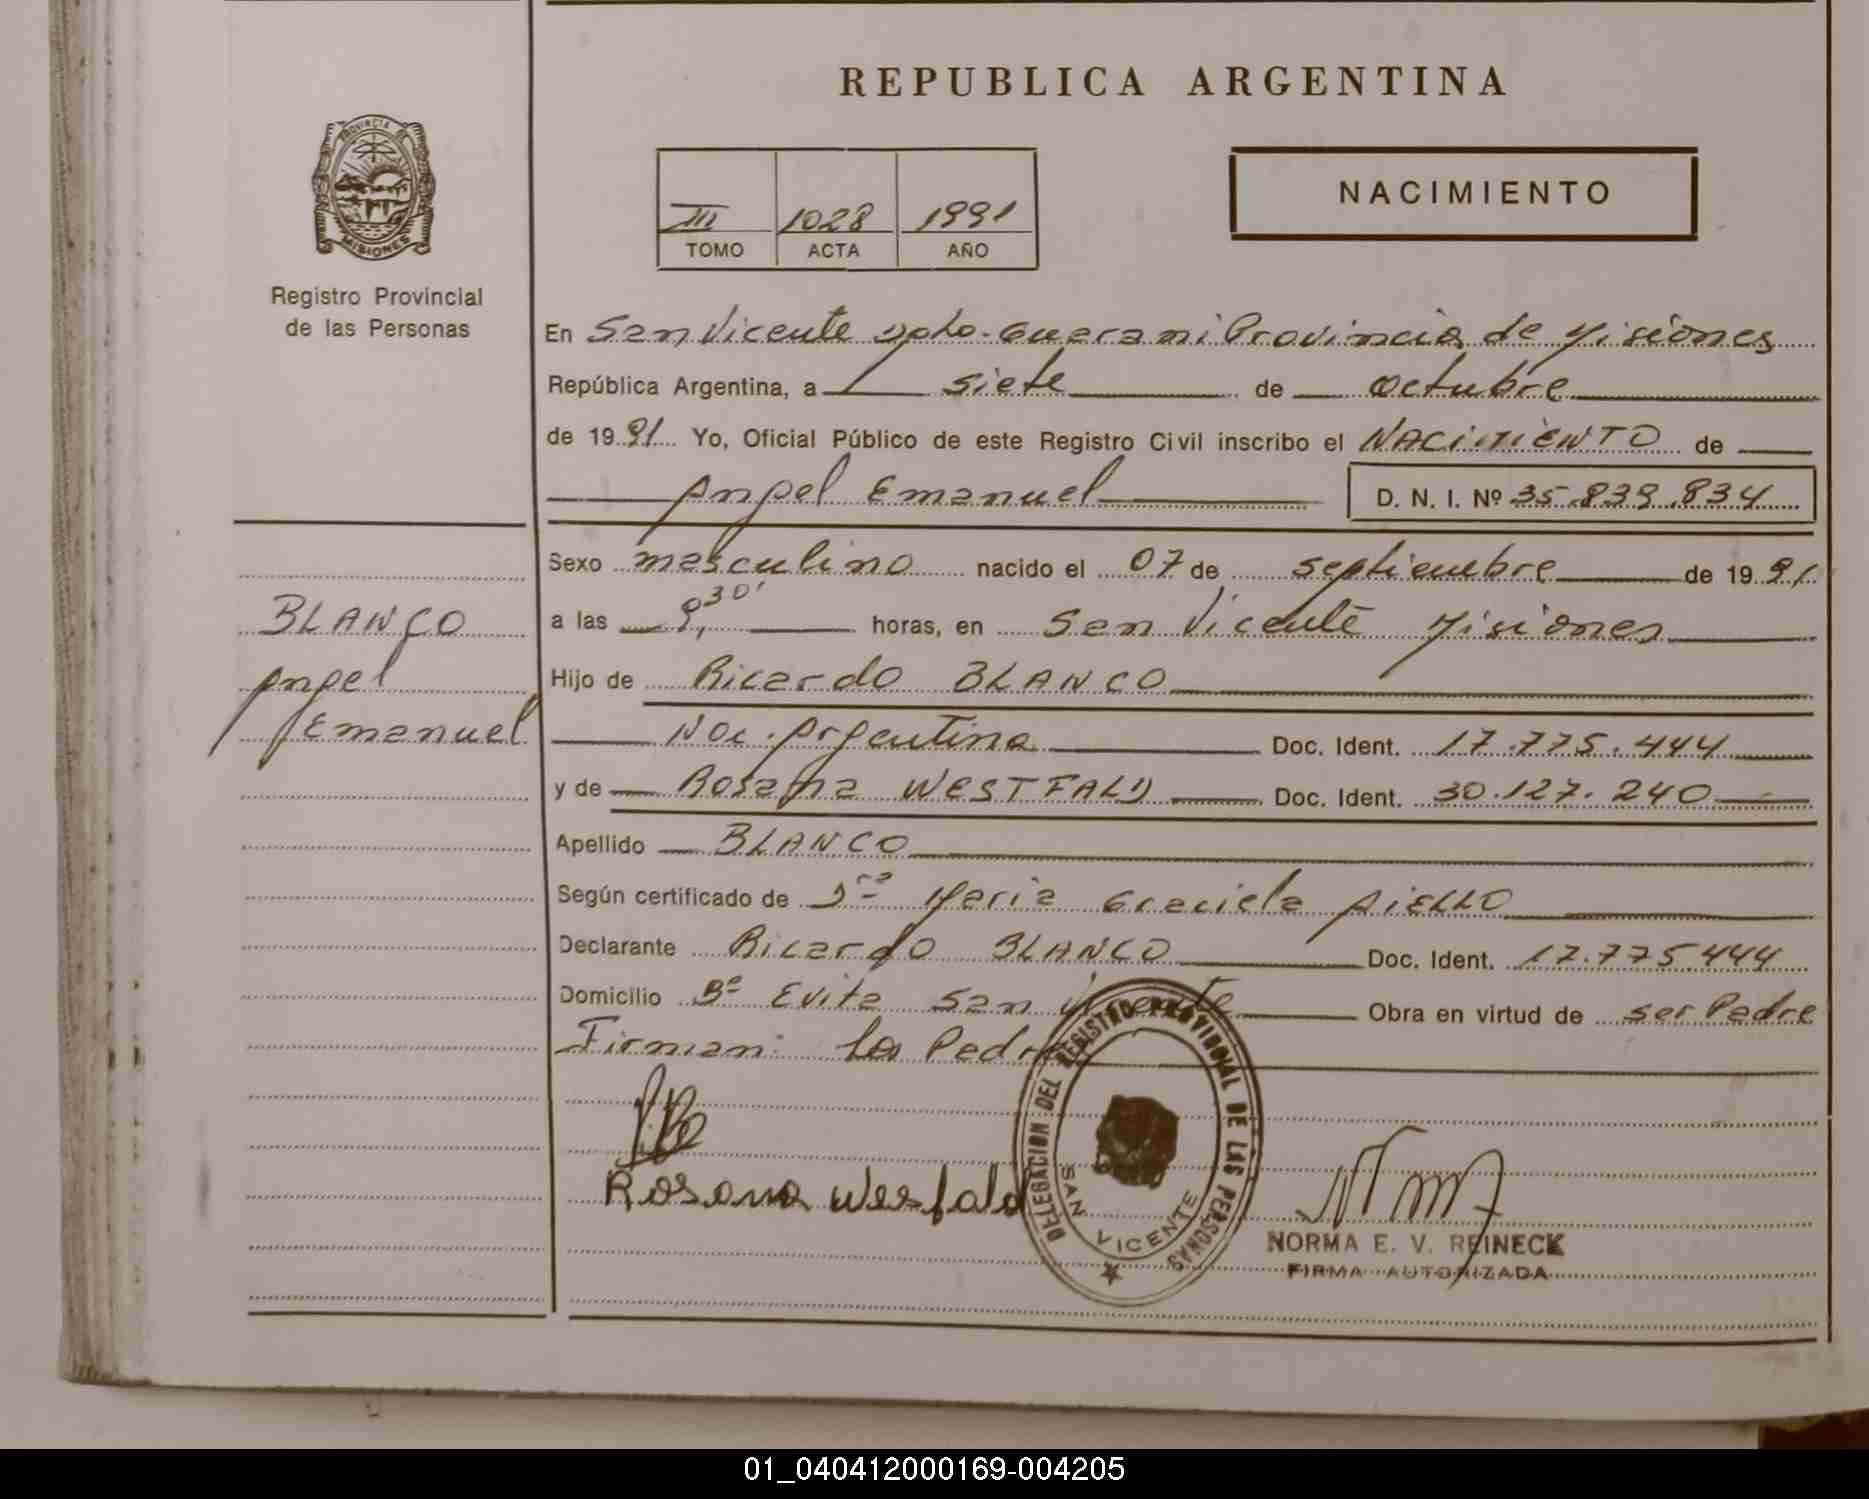 REPUBLICA ARGENTINA
PROVINCIA DE
MISIONES
Registro Provincial
de las Personas
III 1028 1991
TOMO ACTA AÑO
NACIMIENTO
En San Vicente Dpto. Guarani Provincia de Misiones
República Argentina, a siete de octubre
de 1991 Yo, Oficial Público de este Registro Civil inscribo el NACIMIENTO de
Angel Emanuel D. N. I. Nº 35.839.834
BLANCO
Angel
Emanuel
Sexo masculino nacido el 07 de septiembre de 1991
a las 9,30' horas, en San Vicente Misiones
Hijo de Ricardo BLANCO
Nac. Argentina Doc. Ident. 17.775.444
y de Rosana WESTFALD Doc. Ident. 30.127.240
Apellido BLANCO
Según certificado de Dra Maria Graciela AIELLO
Declarante Ricardo BLANCO Doc. Ident. 17.775.444
Domicilio Bº Evita San Vicente Obra en virtud de ser Padre
Firman: los Padres
Rosana Wesfald
DELEGACION DEL REGISTRO PROVINCIAL DE LAS PERSONAS
SAN VICENTE
NORMA E. V. REINECK
FIRMA AUTORIZADA
01_040412000169-004205